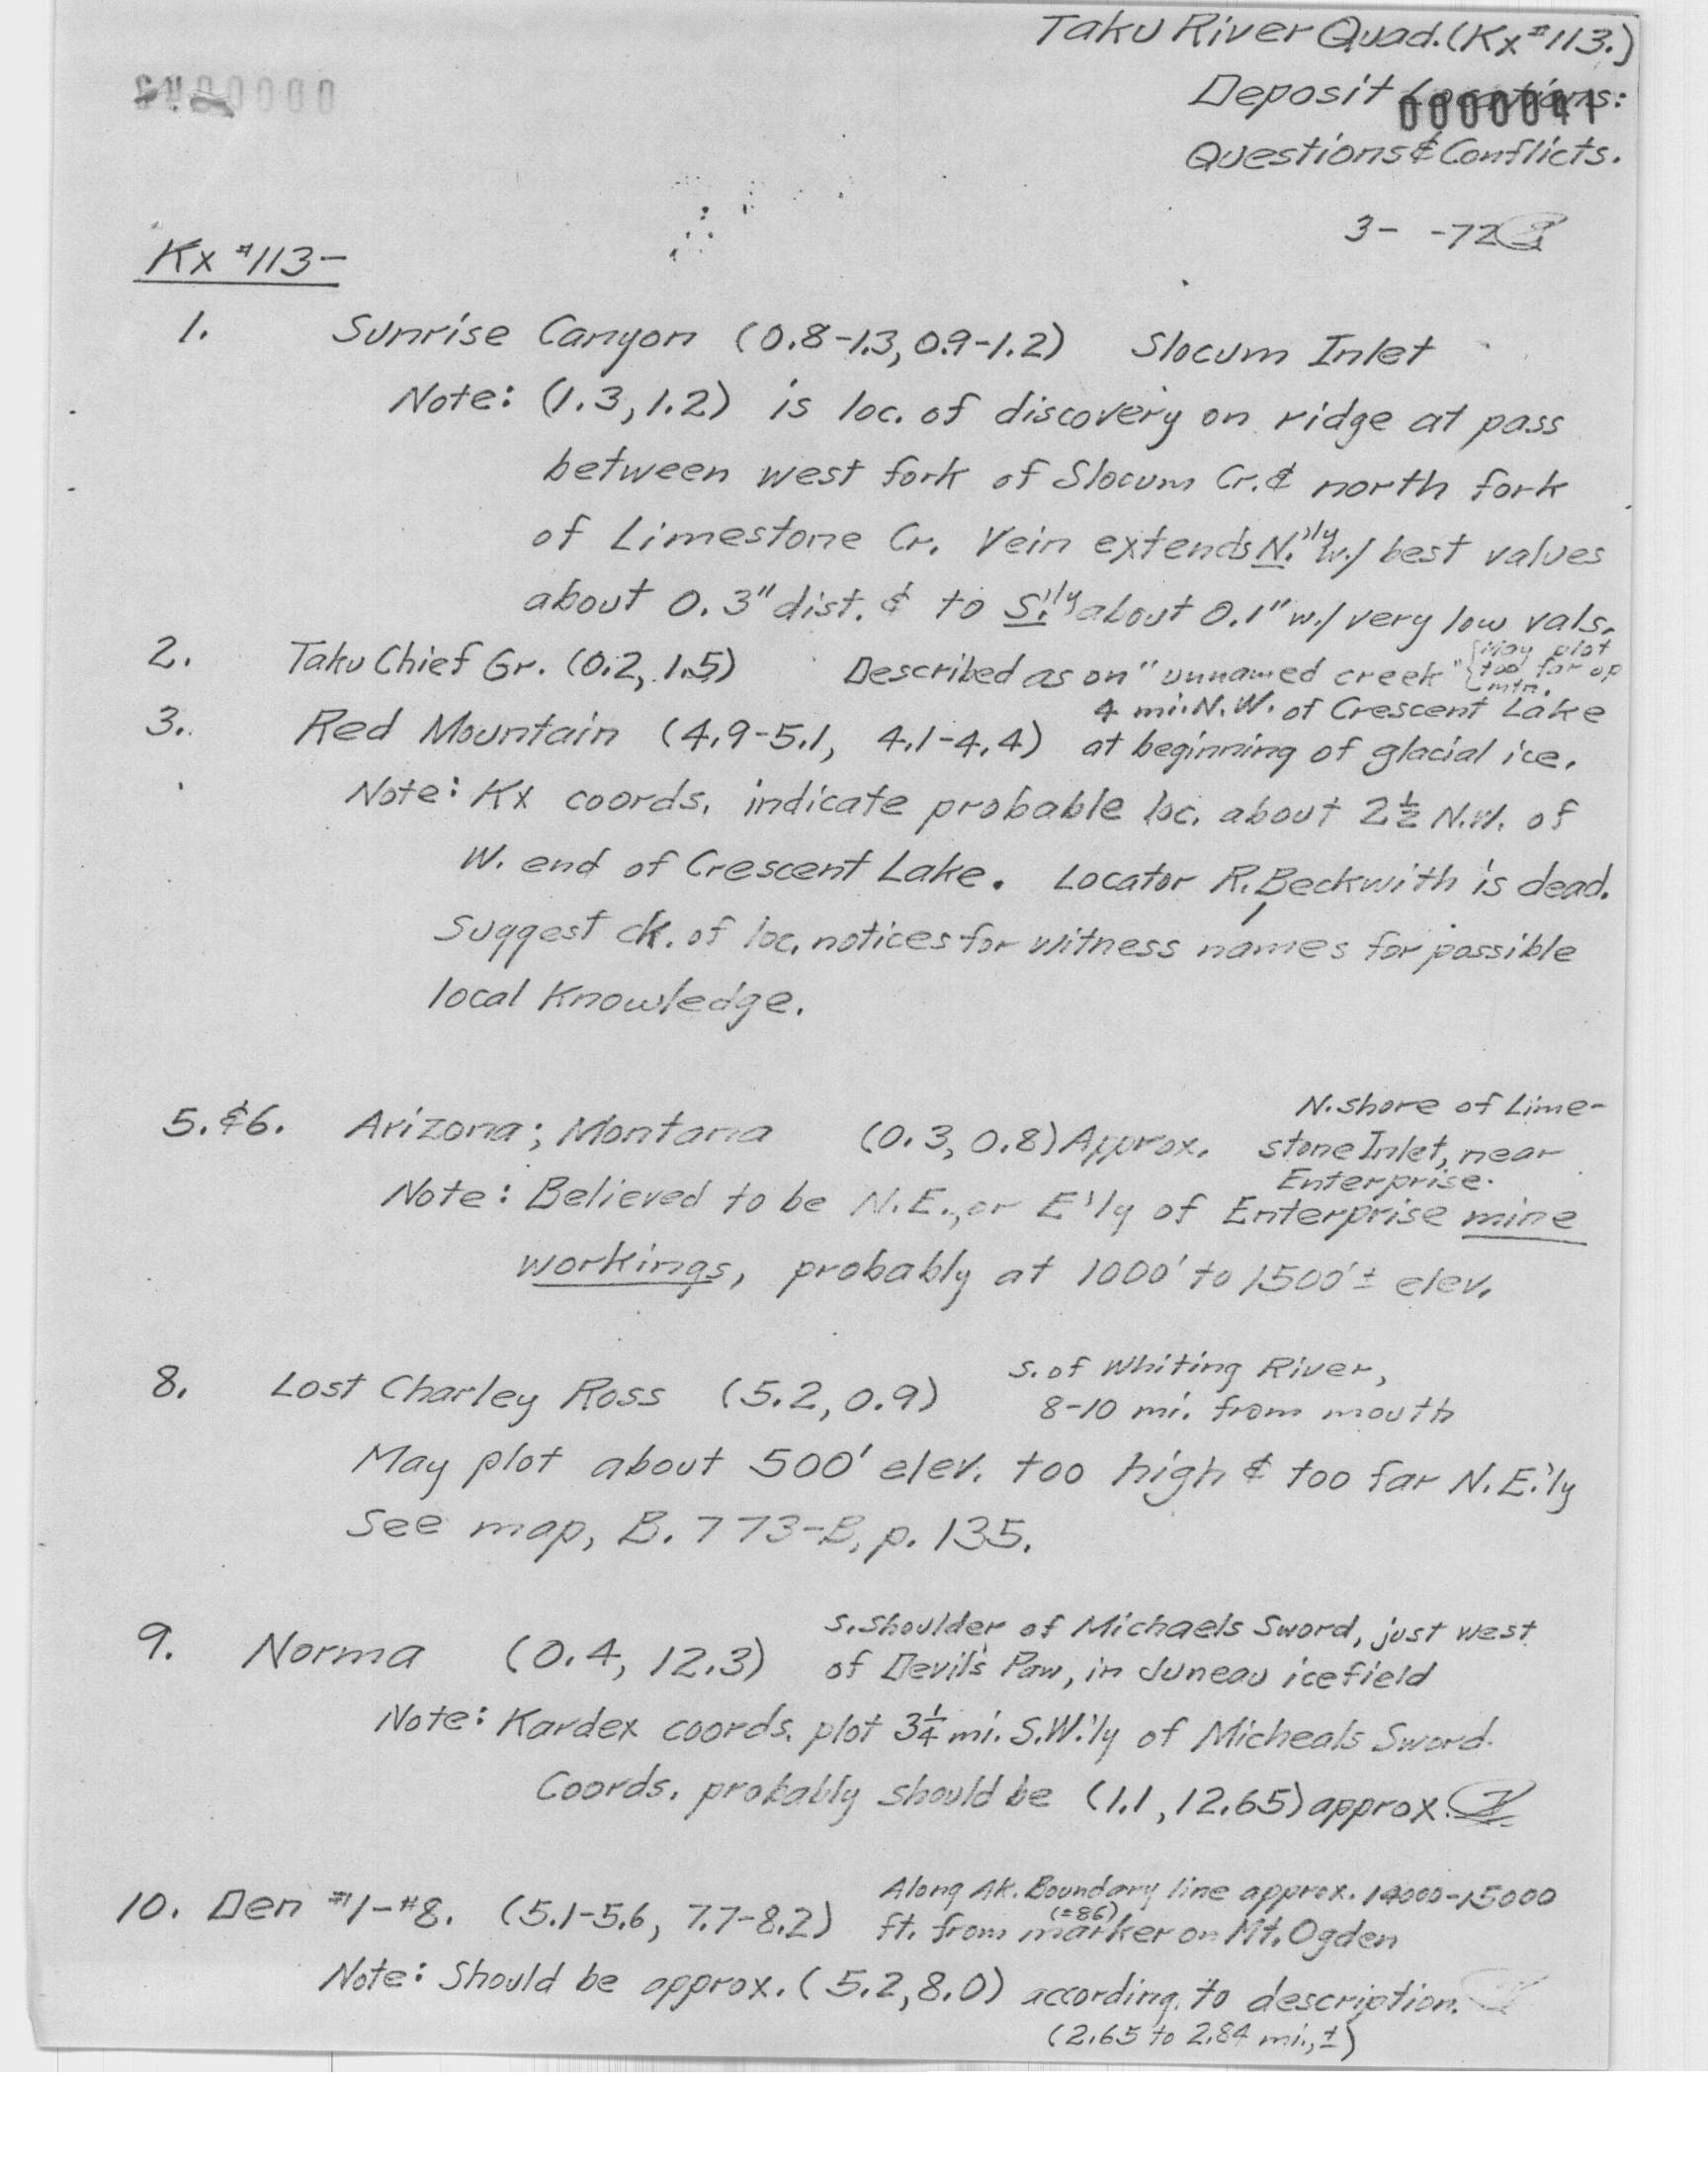 Taku River Quad. (Kx #113.)
Deposit Locations:
0000041
Questions & Conflicts.
3- -72
Kx #113-
1. Sunrise Canyon (0.8-1.3, 0.9-1.2) Slocum Inlet
Note: (1.3, 1.2) is loc. of discovery on ridge at pass
between west fork of Slocum Cr. & north fork
of Limestone Cr. Vein extends N.'ly w./ best values
about 0.3" dist. & to S.'ly about 0.1" w./ very low vals.
2. Taku Chief Gr. (0.2, 1.5) Described as on "unnamed creek" {May plot
too far up
mtn.
4 mi. N.W. of Crescent Lake
3. Red Mountain (4.9-5.1, 4.1-4.4) at beginning of glacial ice.
Note: Kx coords. indicate probable loc. about 2½ N.W. of
W. end of Crescent Lake. Locator R. Beckwith is dead.
Suggest ck. of loc. notices for witness names for possible
local knowledge.
N. shore of Lime-
5. & 6. Arizona; Montana (0.3, 0.8) Approx. stone Inlet, near
Enterprise.
Note: Believed to be N.E., or E'ly of Enterprise mine
workings, probably at 1000' to 1500' ± elev.
S. of Whiting River,
8. Lost Charley Ross (5.2, 0.9) 8-10 mi. from mouth
May plot about 500' elev. too high & too far N.E.'ly
See map, B. 773-B, p. 135.
S. Shoulder of Michaels Sword, just west
9. Norma (0.4, 12.3) of Devil's Paw, in Juneau icefield
Note: Kardex coords. plot 3¼ mi. S.W.'ly of Micheals Sword.
Coords. probably should be (1.1, 12.65) approx.
Along Ak. Boundary line approx. 14000-15000
10. Den #1-#8. (5.1-5.6, 7.7-8.2) ft. from marker (=86) on Mt. Ogden
Note: Should be approx. (5.2, 8.0) according to description.
(2.65 to 2.84 mi., ±)